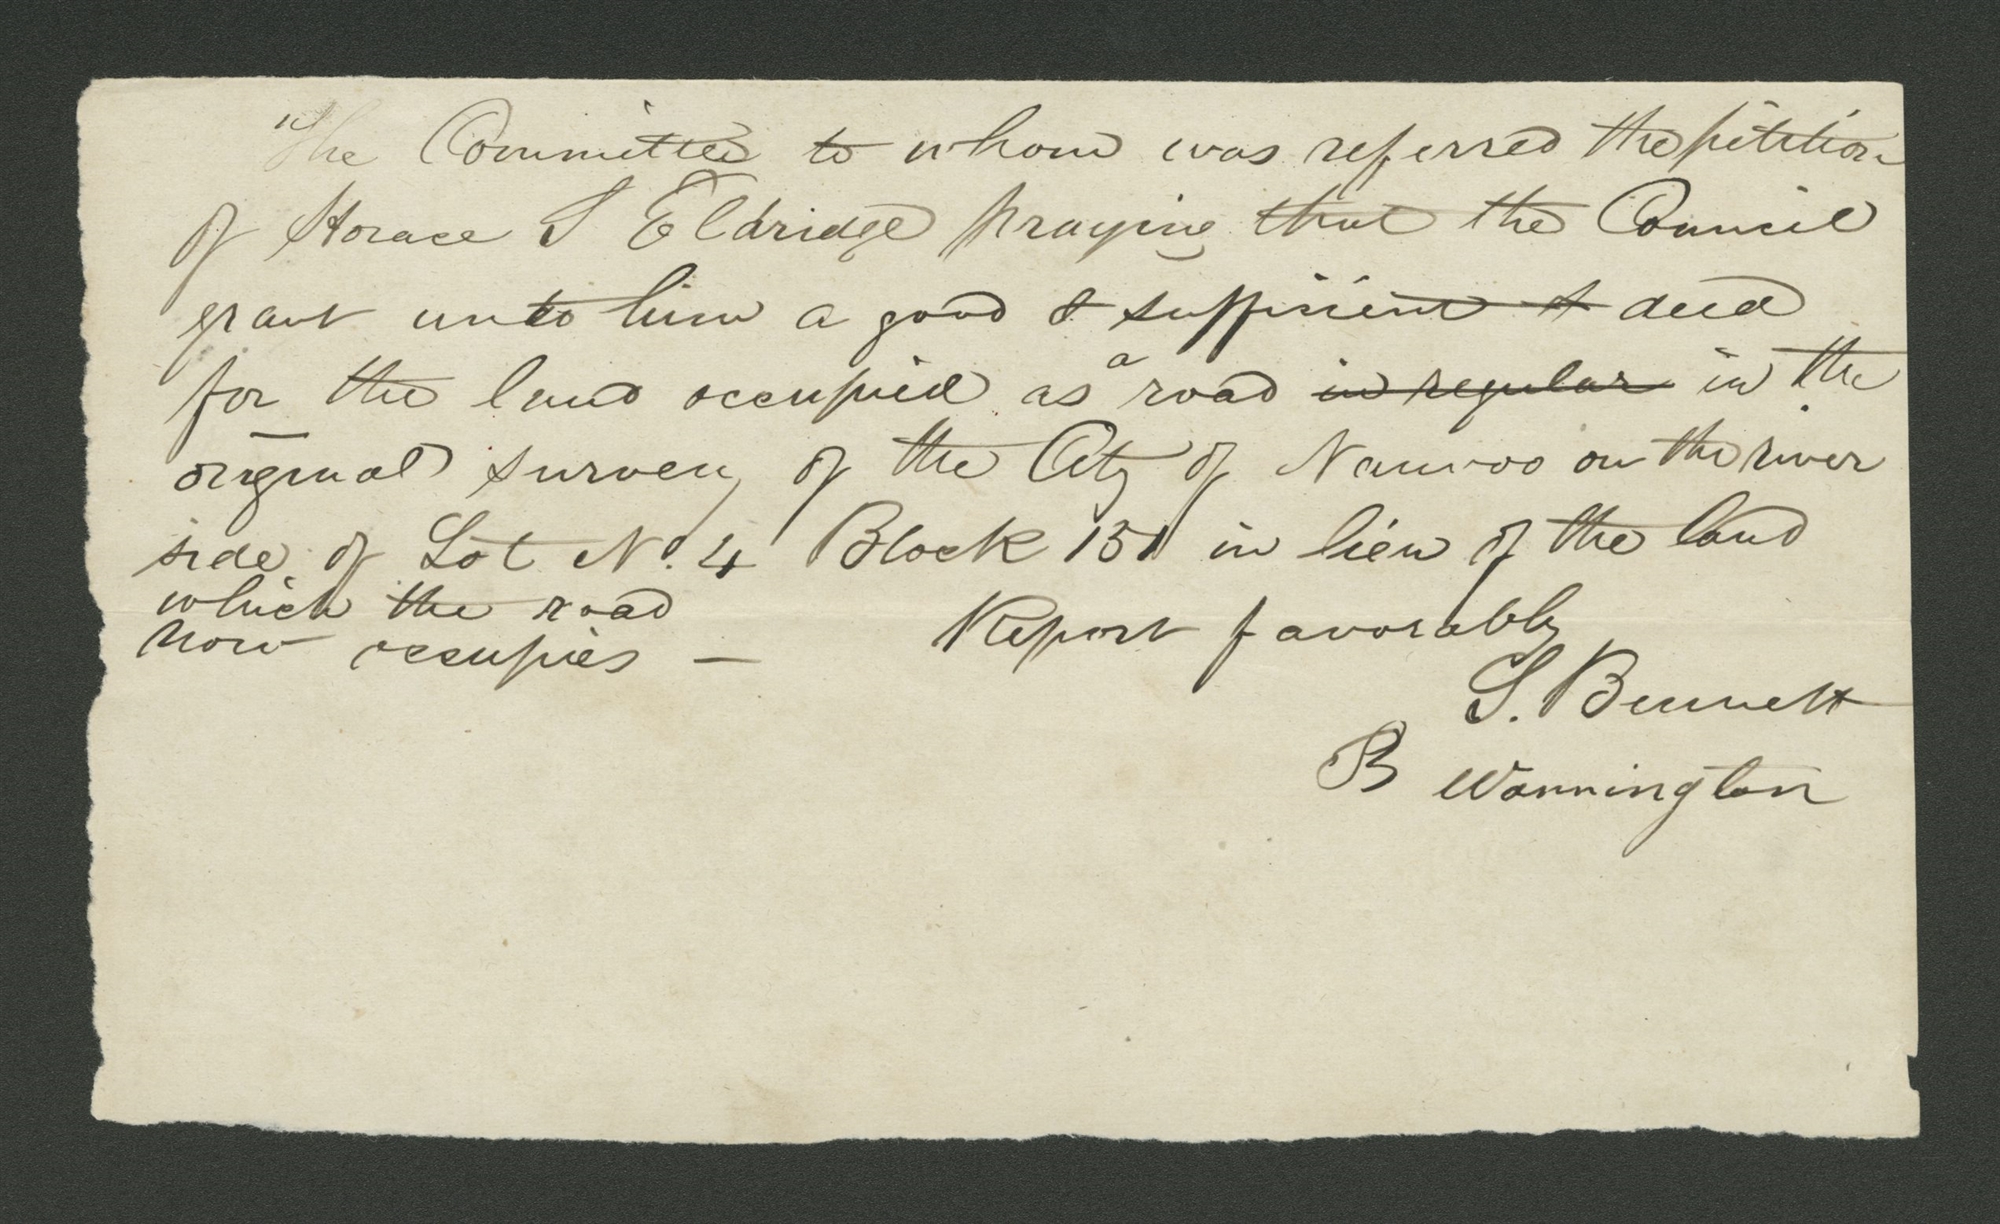 The Committee to whom was referred the petition
of Horace S Eldridge praying that the Council
grant unto him a good & sufficient & deed
for the land occupied as a road in regular in the
original survey of the City of Nauvoo on the river
side of Lot No. 4 Block 151 in lieu of the land
which the road
now occupies — Report favorably
S. Bennett
B Warrington